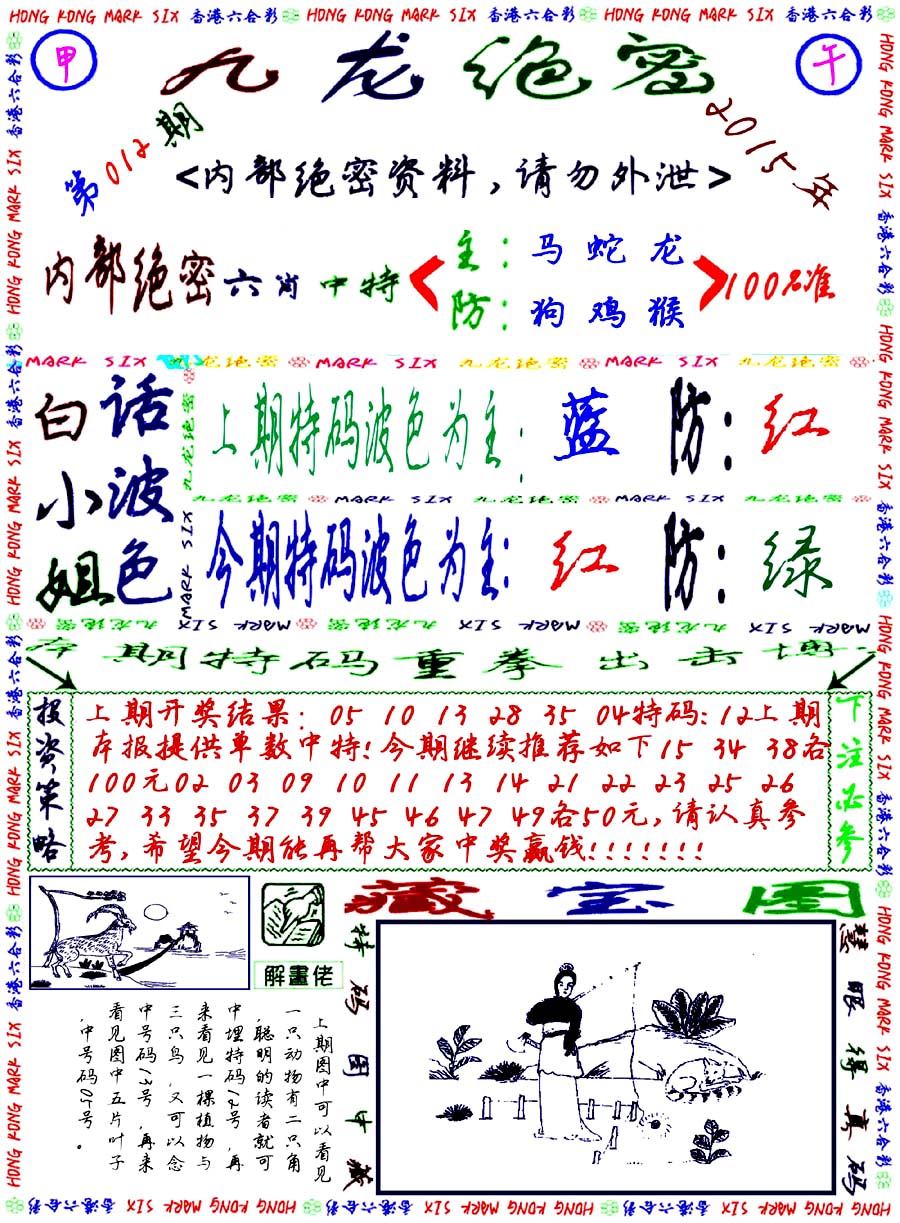 HONG KONG MARK SIX 香港六合彩 HONG KONG MARK SIX 香港六合彩 HONG KONG MARK SIX 香港六合彩
甲
九龙绝密
午
第012期
2015年
<内部绝密资料,请勿外泄>
内部绝密六肖中特
主:马蛇龙
防:狗鸡猴
100%准
MARK SIX 九龙绝密 MARK SIX 九龙绝密 MARK SIX 九龙绝密
白话
小波
姐色
上期特码波色为主:蓝 防:红
九龙绝密 MARK SIX 九龙绝密 MARK SIX 九龙绝密
今期特码波色为主:红 防:绿
九龙绝密 MARK SIX 九龙绝密 MARK SIX 九龙绝密 MARK SIX
本期特码重拳出击博
投资策略
上期开奖结果:05 10 13 28 35 04特码:12上期
本报提供单数中特!今期继续推荐如下15 34 38各
100元02 03 09 10 11 13 14 21 22 23 25 26
27 33 35 37 39 45 46 47 49各50元,请认真参
考,希望今期能再帮大家中奖赢钱!!!!!!!
下注必参
藏宝图
解畫佬
上期图中可以看见
一只动物有二只角
,聪明的读者就可
中埋特码12号,再
来看见一棵植物与
三只鸟,又可以念
中号码13号,再来
看见图中五片叶子
,中号码05号。
特码图中藏
慧眼得真码
HONG KONG MARK SIX 香港六合彩 HONG KONG MARK SIX 香港六合彩 HONG KONG MARK SIX 香港六合彩